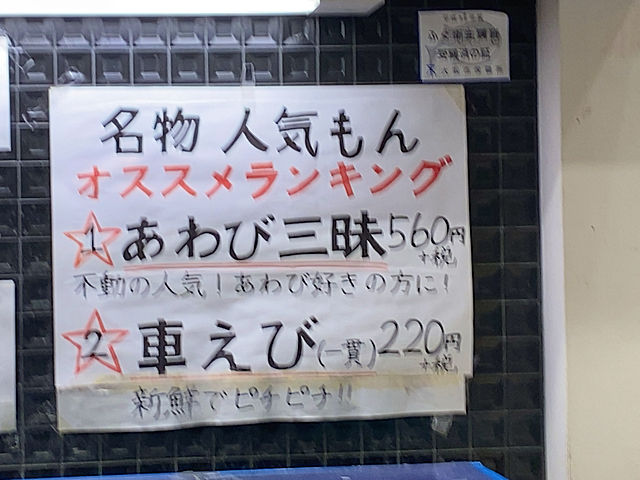 名物 人気もん
オススメランキング
1 あわび三昧 560円
+税
不動の人気！あわび好きの方に！
2 車えび(一貫)220円
+税
新鮮でピチピチ!!